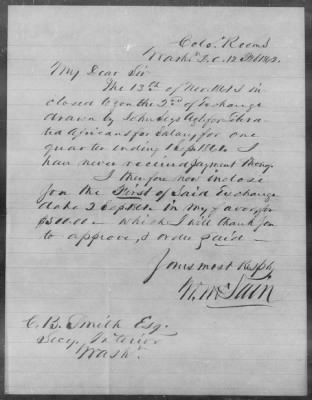 Colo. Rooms
Wash. D.C. 12 Feb 1862.
My Dear Sir
The 13th of Nov. last I in
closed to you the 2nd of Exchange
drawn by John Seys Agt for
Africans for Salary for one
quarter ending Sept. I
have never received payment
I therefore now inclose
you the First of Said Exchange
date 2 in my favor for
which I will thank you
to approve, & order paid —
Yours most Resply,
W. McLain
C. B. Smith Esq.
Secy. Interior
Wash.